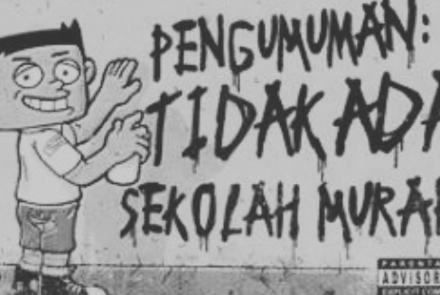 PENGUMUMAN:
TIDAK ADA
SEKOLAH MURAH
PARENTAL
ADVISORY
EXPLICIT CONTENT